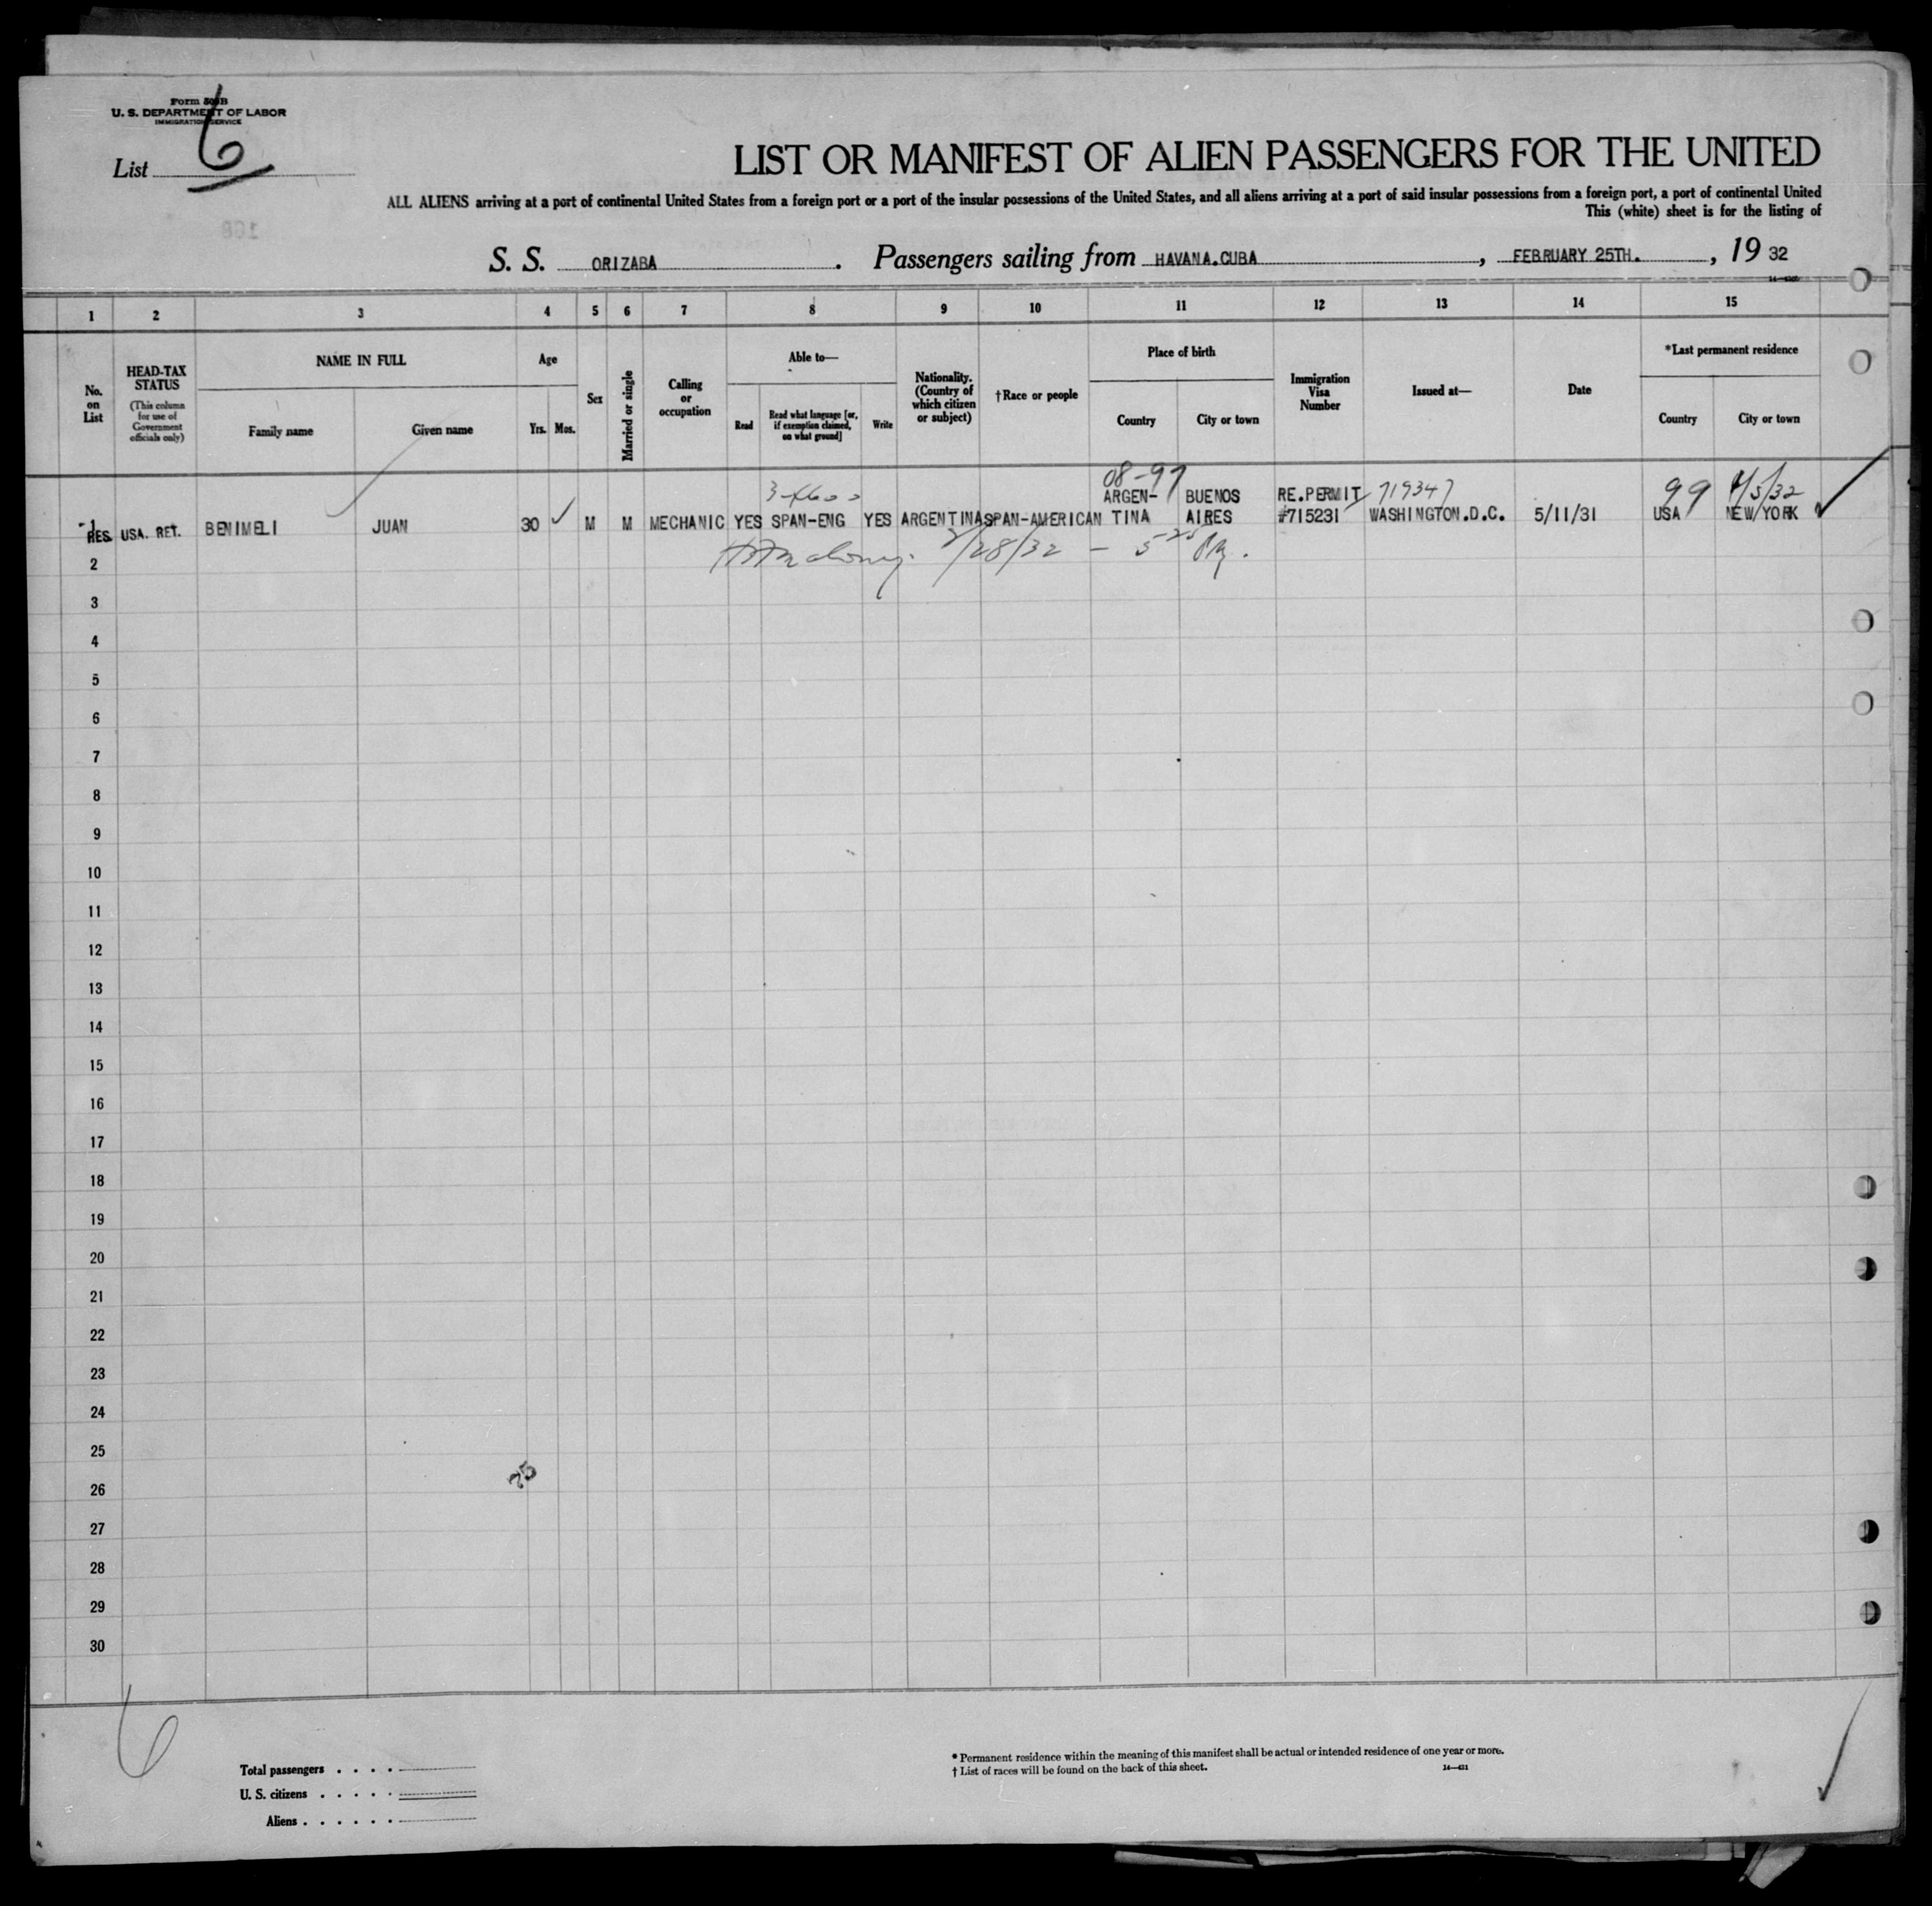 Form 500B
U. S. DEPARTMENT OF LABOR
IMMIGRATION SERVICE
List 6
LIST OR MANIFEST OF ALIEN PASSENGERS FOR THE UNITED
ALL ALIENS arriving at a port of continental United States from a foreign port or a port of the insular possessions of the United States, and all aliens arriving at a port of said insular possessions from a foreign port, a port of continental United
This (white) sheet is for the listing of
S. S. ORIZABA. Passengers sailing from HAVANA.CUBA, FEBRUARY 25TH., 19 32
1 2 3 4 5 6 7 8 9 10 11 12 13 14 15
No. on List
HEAD-TAX STATUS
(This column for use of Government officials only)
NAME IN FULL
Family name
Given name
Age
Yrs. Mos.
Sex
Married or single
Calling or occupation
Able to—
Read
Read what language [or, if exemption claimed, on what ground]
Write
Nationality. (Country of which citizen or subject)
†Race or people
Place of birth
Country
City or town
Immigration Visa Number
Issued at—
Date
*Last permanent residence
Country
City or town
08-97 99 4/5/32
ARGEN- BUENOS RE.PERMIT 719347
1 RES. USA. RET. BENIMELI JUAN 30 M M MECHANIC YES SPAN-ENG YES ARGENTINA SPAN-AMERICAN TINA AIRES #715231 WASHINGTON.D.C. 5/11/31 USA NEW YORK
2/28/32 —
2
3
4
5
6
7
8
9
10
11
12
13
14
15
16
17
18
19
20
21
22
23
24
25
26
27
28
29
30
6
Total passengers . . . .
U. S. citizens . . . . .
Aliens . . . . . .
* Permanent residence within the meaning of this manifest shall be actual or intended residence of one year or more.
† List of races will be found on the back of this sheet.
14—431